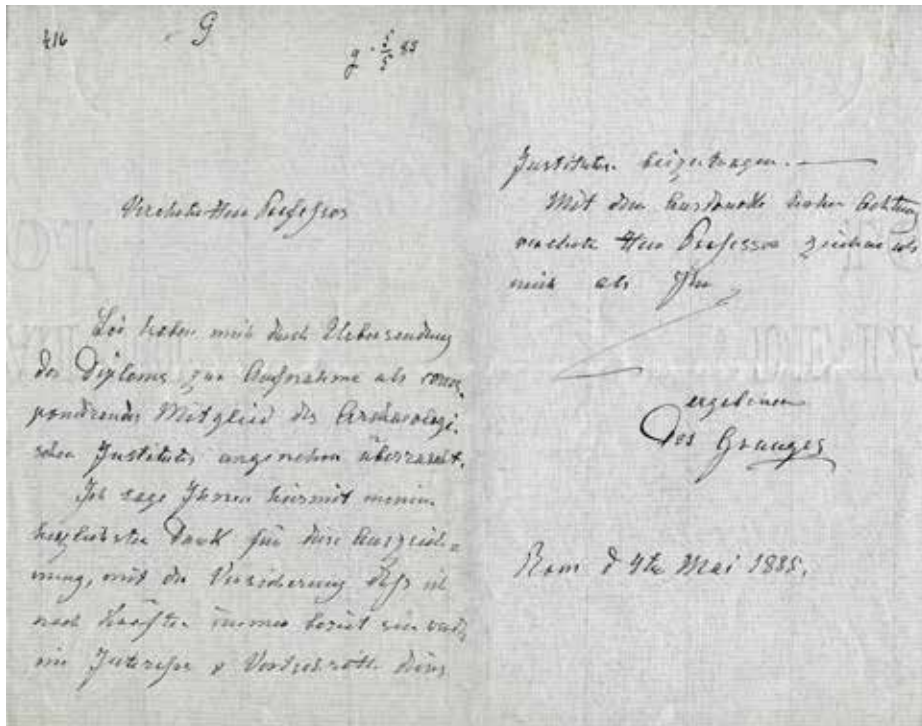 416
G
g. 5/5 85
Verehrter Herr Professor
Sie haben mich durch Uebersendung
des Diploms zur Aufnahme als corres-
pondirendes Mitglied des Archaeologi-
schen Institutes angenehm überrascht.
Ich sage Ihnen hiermit meinen
herzlichsten Dank für diese Auszeich-
nung, mit der Versicherung dass ich
nach Kräften immer bereit sein werde
im Interesse u Fortschritte dieses
Institutes beizutragen.
Mit dem Ausdrucke hoher Achtung
verehrter Herr Professor zeichne ich
mich als Ihr
ergebener
Des Granges
Rom d 4te Mai 1885.